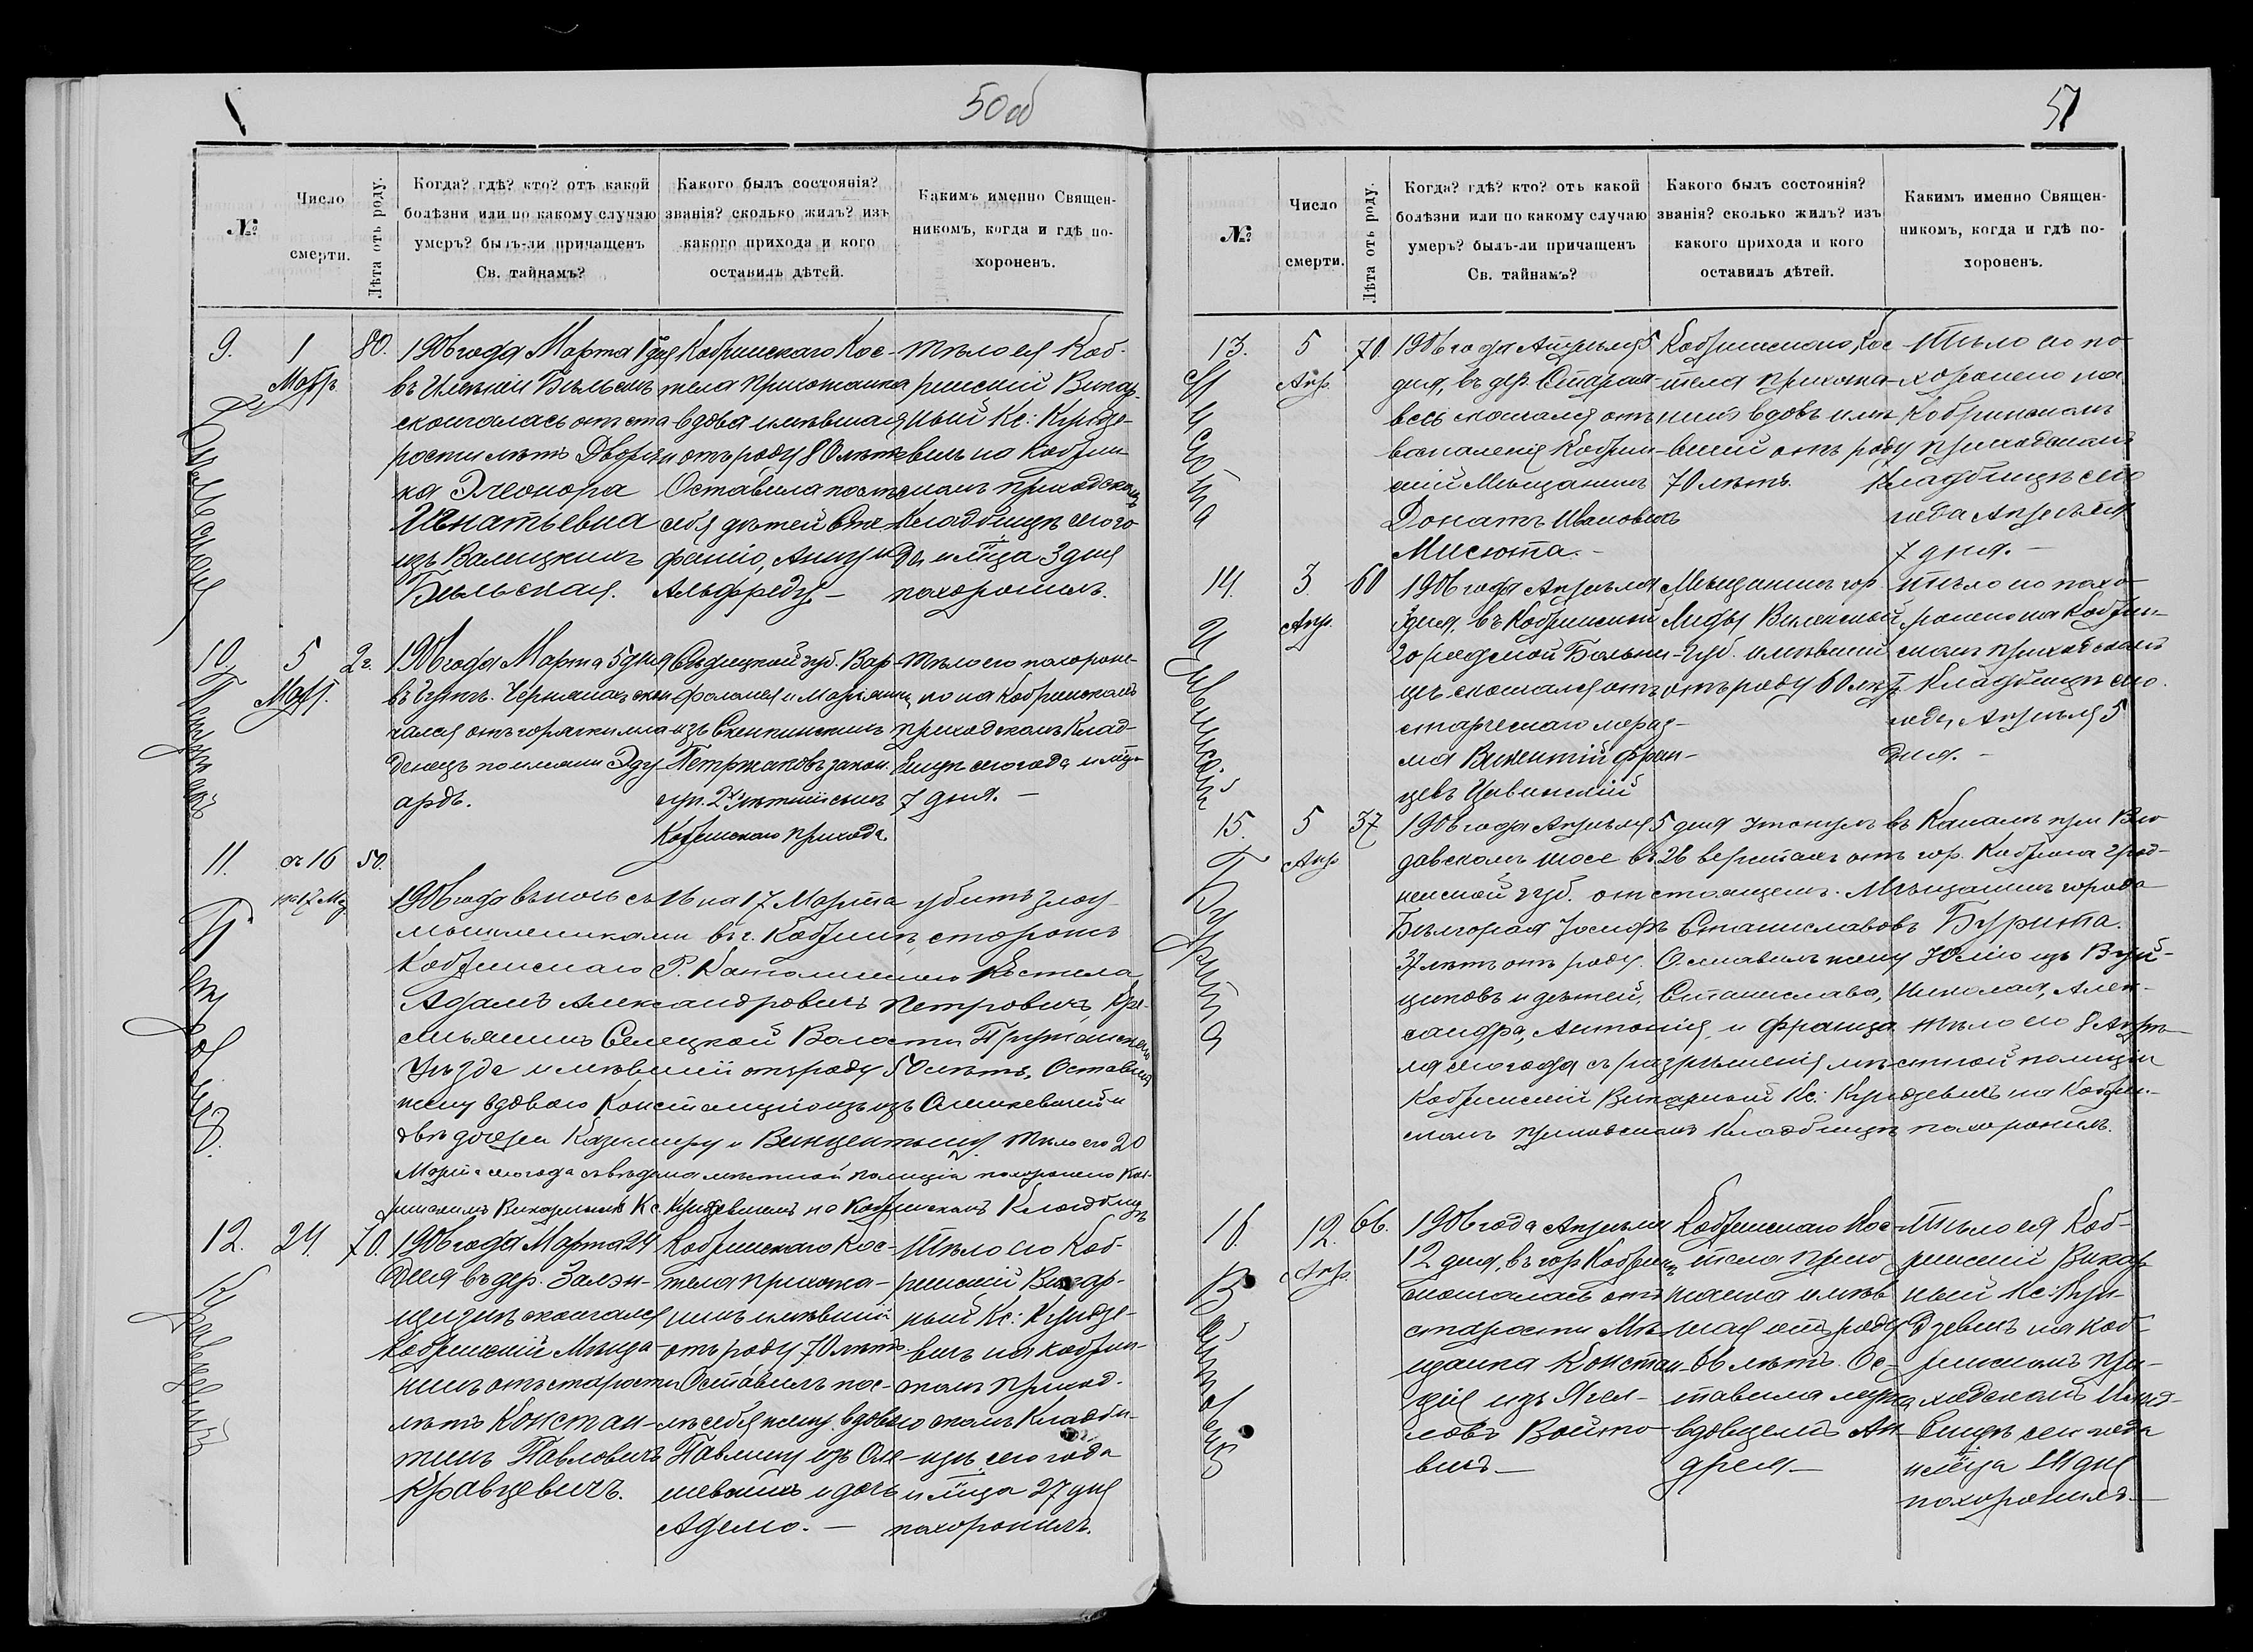 50 об
№
Число
смерти.
Лѣта отъ роду.
Когда? гдѣ? кто? отъ какой
болѣзни или по какому случаю
умеръ? былъ-ли причащенъ
Св. тайнамъ?
Какого былъ состоянія?
званія? сколько жилъ? изъ
какого прихода и кого
оставилъ дѣтей.
Какимъ именно Священ-
никомъ, когда и гдѣ по-
хороненъ.
9.
1
Мар.
80.
Бѣльская
1906 года Марта 1 дня
въ имѣніи Бѣльскихъ
скончалась отъ ста-
рости лѣтъ Дворян-
ка Элеонора
Игнатьевна
изъ Валицкихъ
Бѣльская.
Кобринскаго Кос-
тела прихожанка
вдова имѣвшая
отъ роду 80 лѣтъ
Оставила послѣ
себя дѣтей Сте-
фанію, Анну и
Альфреда. —
Тѣло ея Коб-
ринскій Викар-
ный Кс: Кундзе-
вичъ на Кобрин-
скомъ приходскомъ
Кладбищѣ сего
года и м-ца 3 дня
похоронилъ.
10.
5
Мар.
2 г.
Петржакъ
1906 года Марта 5 дня
скон-
чался отъ горячки мла-
денецъ по имени Эду-
ардъ.
Сѣдлецкой губ. Вар-
фоломея и Маріанны
изъ
Петржаковъ закон.
супр. 2 лѣтній сынъ
Кобринскаго прихода
Тѣло его похороне-
но на Кобринскомъ
приходскомъ Клад-
бищѣ сего года и м-ца
7 дня. —
11.
съ 16
на 17 Мар
50.
Петровичъ
1906 года въ ночь съ 16 на 17 Марта убитъ злоу-
мышленниками въ г. Кобринѣ сторожъ
Кобринскаго Р. Католическаго Костела
Адамъ Александровичъ Петровичъ, Кре-
стьянинъ Селецкой Волости Пружанскаго
Уѣзда имѣвшій отъ роду 50 лѣтъ. Оставилъ
жену вдовою Констанцію изъ
двѣ дочери Казимиру и Винцентину. Тѣло его 20
Марта сего года съ вѣдома мѣстной полиціи похоронено Коб-
ринскимъ Викарнымъ Кс. Кундзевичемъ на Кобринскомъ Кладбищѣ
12.
24.
70.
Кравцевичъ
1906 года Марта 24
дня въ дер. Залѣ-
скончался
Кобринскій Мѣща-
нинъ отъ старости
лѣтъ Констан-
тинъ Павловичъ
Кравцевичъ.
Кобринскаго Кос-
тела прихожа-
нинъ имѣвшій
отъ роду 70 лѣтъ
Оставилъ пос-
лѣ себя жену вдовою
Павлину изъ Оле-
и дочь
Аделю. —
Тѣло его Коб-
ринскій Викар-
ный Кс: Кундзе-
вичъ на Кобрин-
скомъ приход-
скомъ Кладби-
щѣ сего года
и м-ца 27 дня
похоронилъ.
51
№
Число
смерти.
Лѣта отъ роду.
Когда? гдѣ? кто? отъ какой
болѣзни или по какому случаю
умеръ? былъ-ли причащенъ
Св. тайнамъ?
Какого былъ состоянія?
званія? сколько жилъ? изъ
какого прихода и кого
оставилъ дѣтей.
Какимъ именно Священ-
никомъ, когда и гдѣ по-
хороненъ.
13.
5
Апр.
70
Мисюта
1906 года Апрѣля 5
дня, въ дер. Старая-
весь скончался отъ
воспаленія Кобрин-
скій Мѣщанинъ
Донатъ Ивановичъ
Мисюта. —
Кобринскаго Кос-
тела прихожа-
нинъ вдовъ имѣ-
вшій отъ роду
70 лѣтъ.
Тѣло его по-
хоронено на
Кобринскомъ
приходскомъ
Кладбищѣ сего
года Апрѣля
7 дня. —
14.
3
Апр.
60
Цивинскій
1906 года Апрѣля
3 дня, въ Кобринской
городской Больни-
цѣ скончался отъ
старческаго мараз-
ма Викентій Фран-
цевъ Цивинскій
Мѣщанинъ гор
Лиды Виленской
губ. имѣвшій
отъ роду 60 лѣтъ
Тѣло его похо-
ронено на Кобрин-
скомъ приходскомъ
Кладбищѣ сего
года, Апрѣля 5
дня. —
15.
5
Апр
37
Бурита
1906 года Апрѣля 5 дня утонулъ въ Каналѣ при Вло-
давскомъ шосе въ 26 верстахъ отъ гор. Кобрина Грод-
ненской губ. отстоящемъ. Мѣщанинъ города
Бѣлгорая Іосифъ Станиславовъ Бурита.
37 лѣтъ отъ роду. Оставилъ жену Юлію изъ Вуй-
циковъ и дѣтей, Станислава, Николая, Алек-
сандра, Антонія и Франца. Тѣло его 8 Апрѣ-
ля сего года съ разрѣшенія мѣстной полиціи
Кобринскій Викарный Кс: Кундзевичъ на Кобрин-
скомъ приходскомъ Кладбищѣ похоронилъ.
16.
12.
Апр.
66.
Войтовичъ
1906 года Апрѣля
12 дня, въ гор Кобринѣ
скончалась отъ
старости Мѣ-
щанка Констан-
ція изъ Ягел-
ловъ Войто-
вичъ —
Кобринскаго Кос-
тела прихо-
жанка имѣв-
шая отъ роду
66 лѣтъ. Ос-
тавила мужа
вдовцемъ Ан-
дрея —
Тѣло ея Коб-
ринскій Викар-
ный Кс: Кун-
дзевичъ на Коб-
ринскомъ при-
ходскомъ Клад-
бищѣ сего года
и м-ца 14 дня
похоронилъ. —